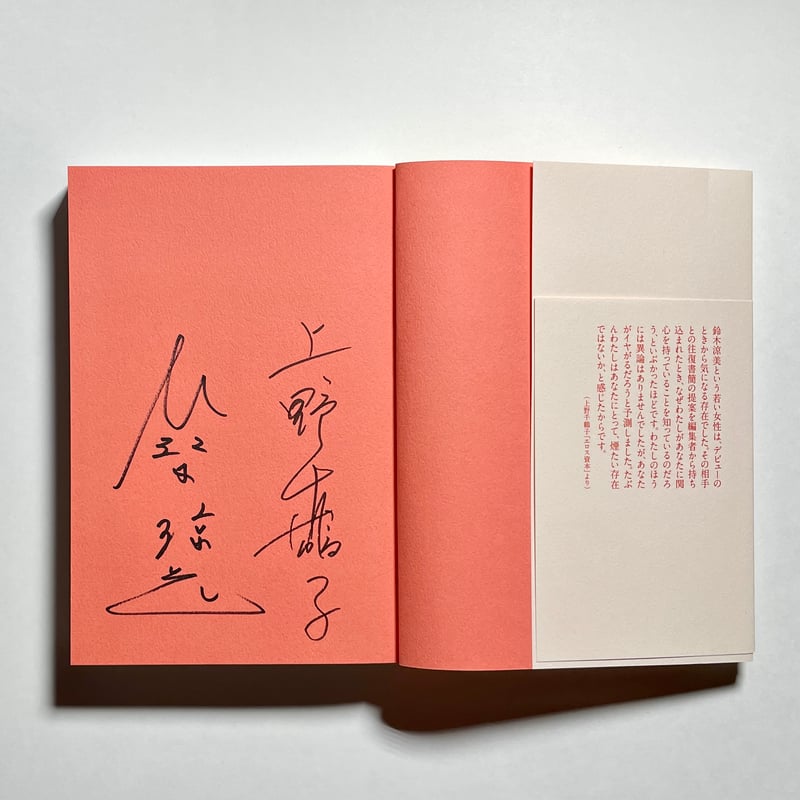 上野千鶴子
鈴木涼美という若い女性は、デビューの
ときから気になる存在でした。その相手
との往復書簡の提案を編集者から持ち
込まれたとき、なぜわたしがあなたに関
心を持っていることを知っているのだろ
う、といぶかったほどです。わたしのほう
には異論はありませんでしたが、あなた
がイヤがるだろうと予測しました。たぶ
んわたしはあなたにとって、煙たい存在
ではないか、と感じたからです。
(上野千鶴子「エロス資本」より)